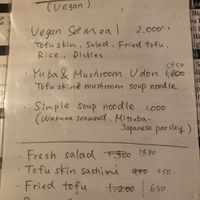 (Vegan)
Vegan Set meal 2.000-
Tofu skin, Salad, Fried tofu,
Rice, Pickles
• Yuba & Mushroom Udon 1,800 1,950
Tofu skin & mushroom soup noodle
• Simple soup noodle 1,000
(Wakame seaweed, Mitsuba-
Japanese parsley)
• Fresh salad 1,300 1480
• Tofu skin sashimi 950.
• Fried tofu 1.200 650